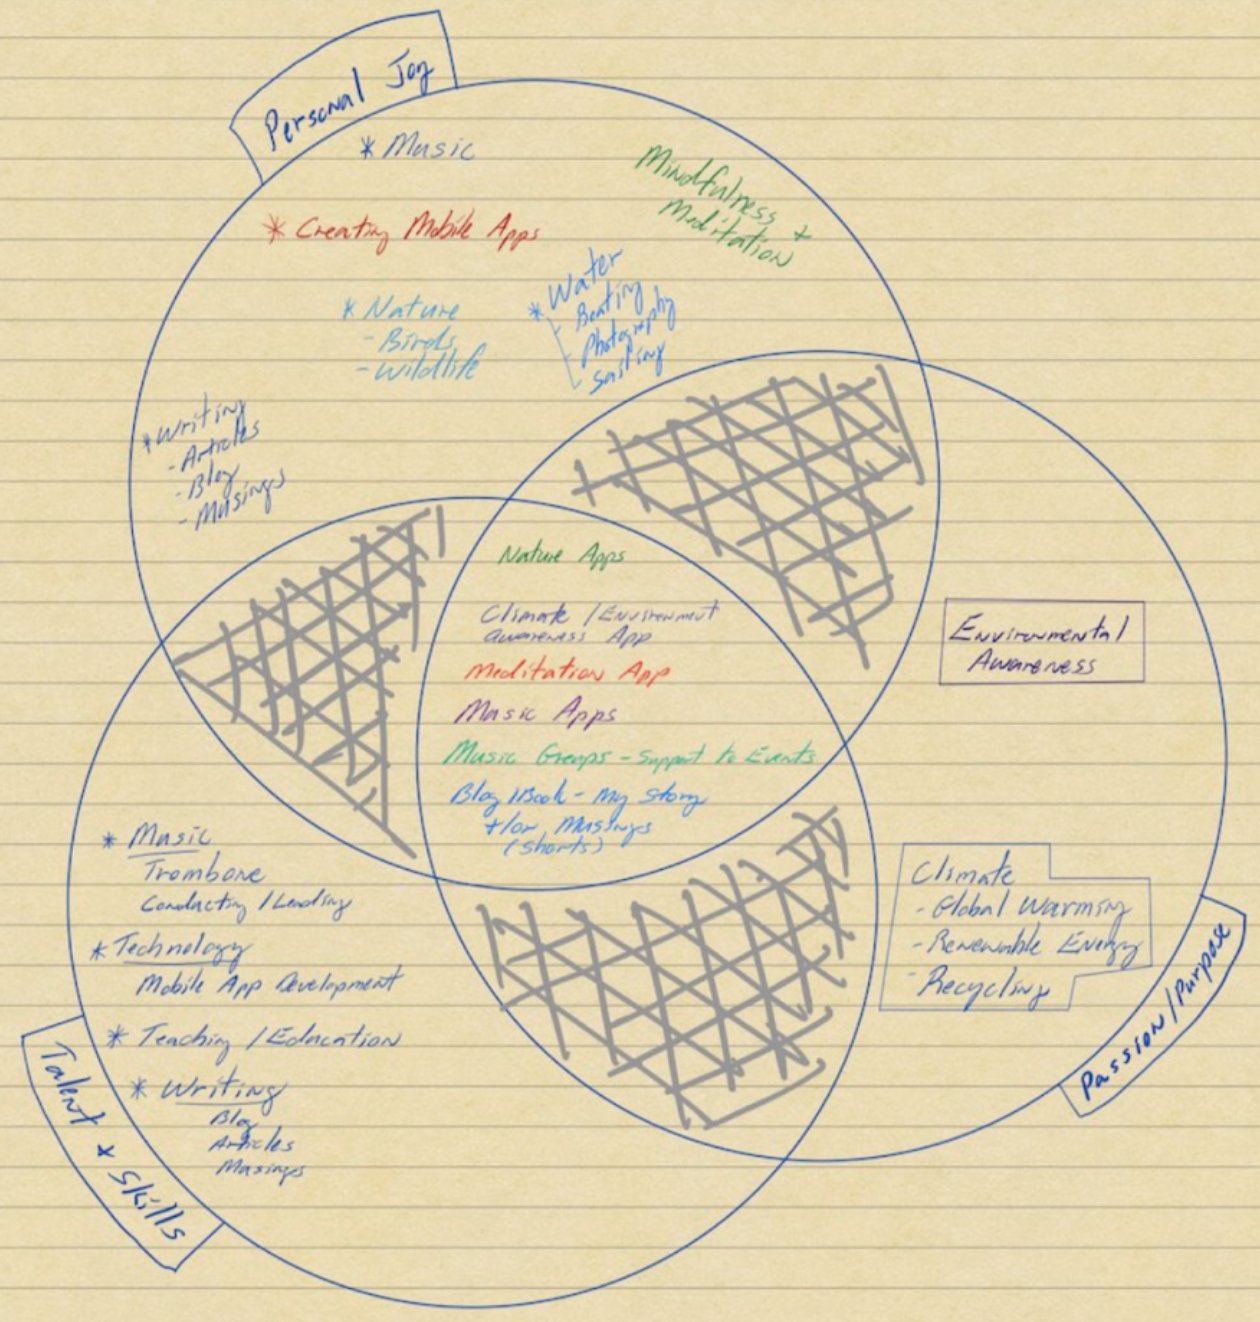 Personal Joy
* Music
Mindfulness +
Meditation
* Creating Mobile Apps
* Nature
- Birds
- Wildlife
* Water
- Boating
- Photography
- Sailing
* Writing
- Articles
- Blog
- Musings
Nature Apps
Climate / Environment
awareness App
Meditation App
Music Apps
Music Groups - Support to Events
Blog / Book - My Story
+/or Musings
(shorts)
Environmental
Awareness
Climate
- Global Warming
- Renewable Energy
- Recycling
Passion/Purpose
* Music
Trombone
Conducting / Leading
* Technology
Mobile App Development
* Teaching / Education
* Writing
Blog
Articles
Musings
Talent + Skills